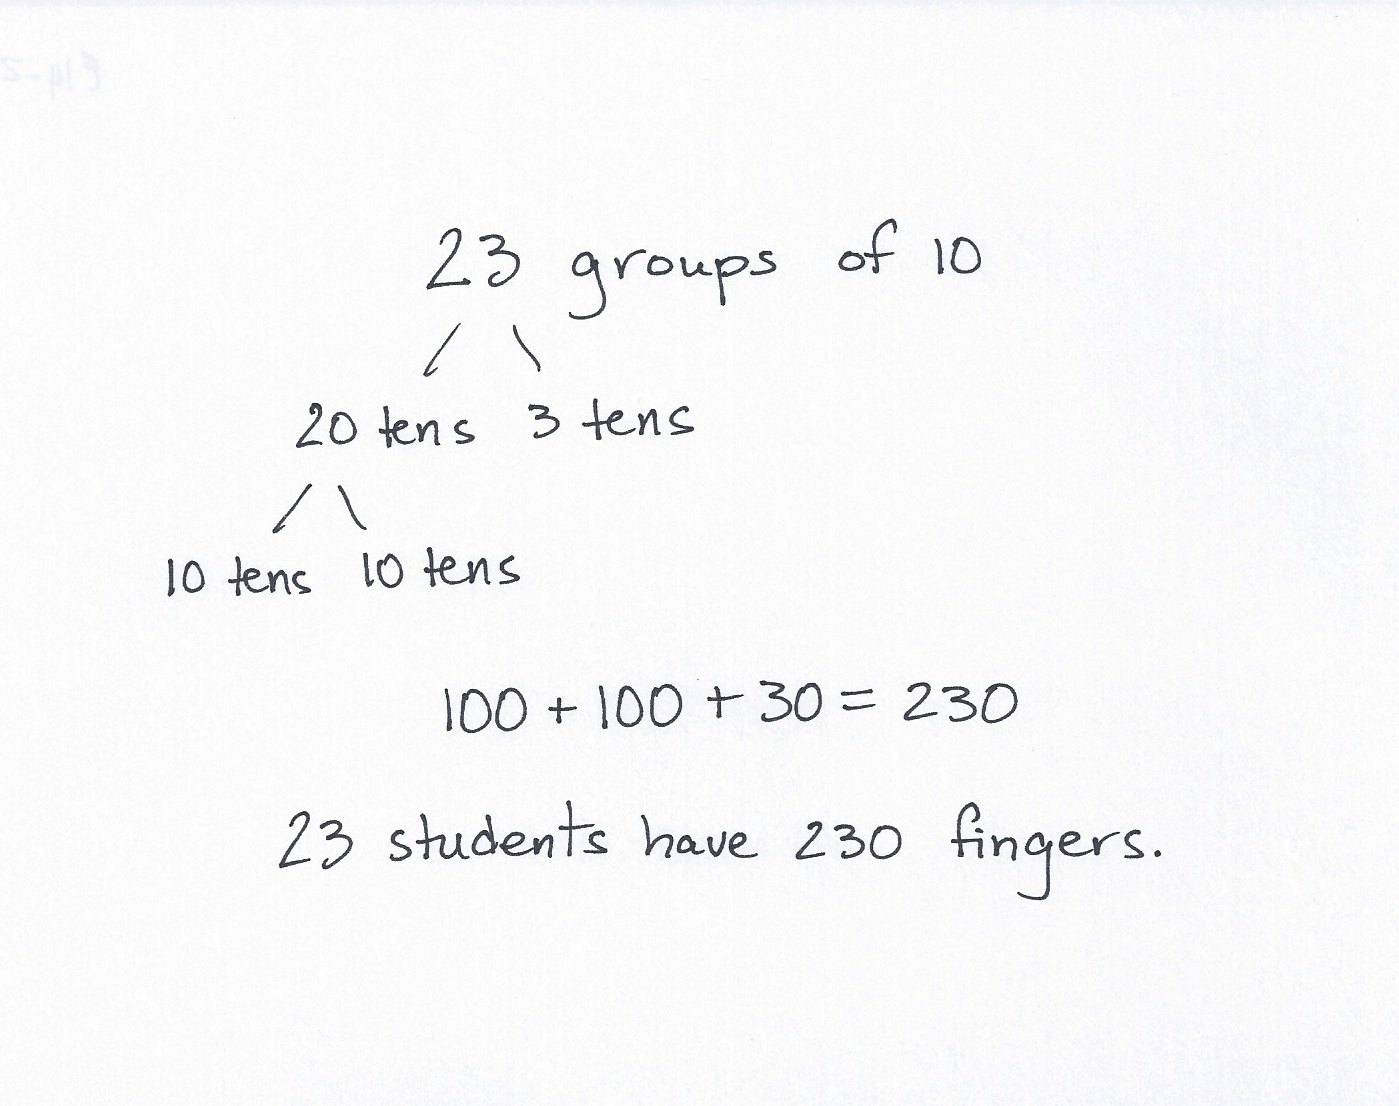 23 groups of 10
20 tens 3 tens
10 tens 10 tens
100 + 100 + 30 = 230
23 students have 230 fingers.